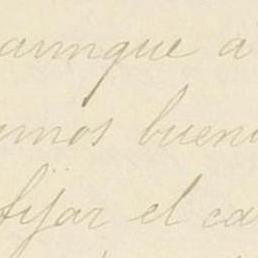 aunque a
amos buen
fijar el ca